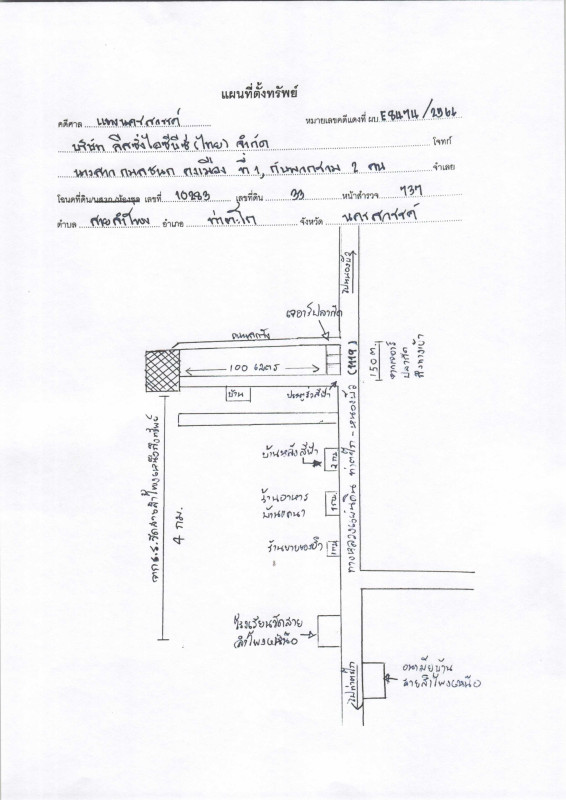 แผนที่ตั้งทรัพย์
คดีศาล แพ่งนครสวรรค์ หมายเลขคดีแดงที่ ผบ E8474/2566
บริษัท ลีสซิ่งไอซีบีซี (ไทย) จำกัด โจทก์
ที่ 1, กับพวกรวม 2 คน จำเลย
โฉนดที่ดิน/น.ส.3ก./ห้องชุด เลขที่ 10283 เลขที่ดิน 33 หน้าสำรวจ 737
ตำบล สายลำโพง อำเภอ ท่าตะโก จังหวัด นครสวรรค์
ไปหนองบัว
เจอาร์ปลากัด
ถนนลูกรัง
100 เมตร
(1119)
150 ม.
จากเจอาร์
ปลากัด
ถึงทางเข้า
บ้าน
ประตูรั้วสีฟ้า
ทางหลวงแผ่นดิน ท่าตะโก - หนองบัว
จาก ร.ร.วัดสายลำโพงเหนือถึงทรัพย์
4 กม.
บ้านหลังสีฟ้า
2 กม.
ร้านอาหาร
1 กม.
ร้านขายของชำ
โรงเรียนวัดสาย
ลำโพงเหนือ
ไปท่าตะโก
อนามัยบ้าน
สายลำโพงเหนือ